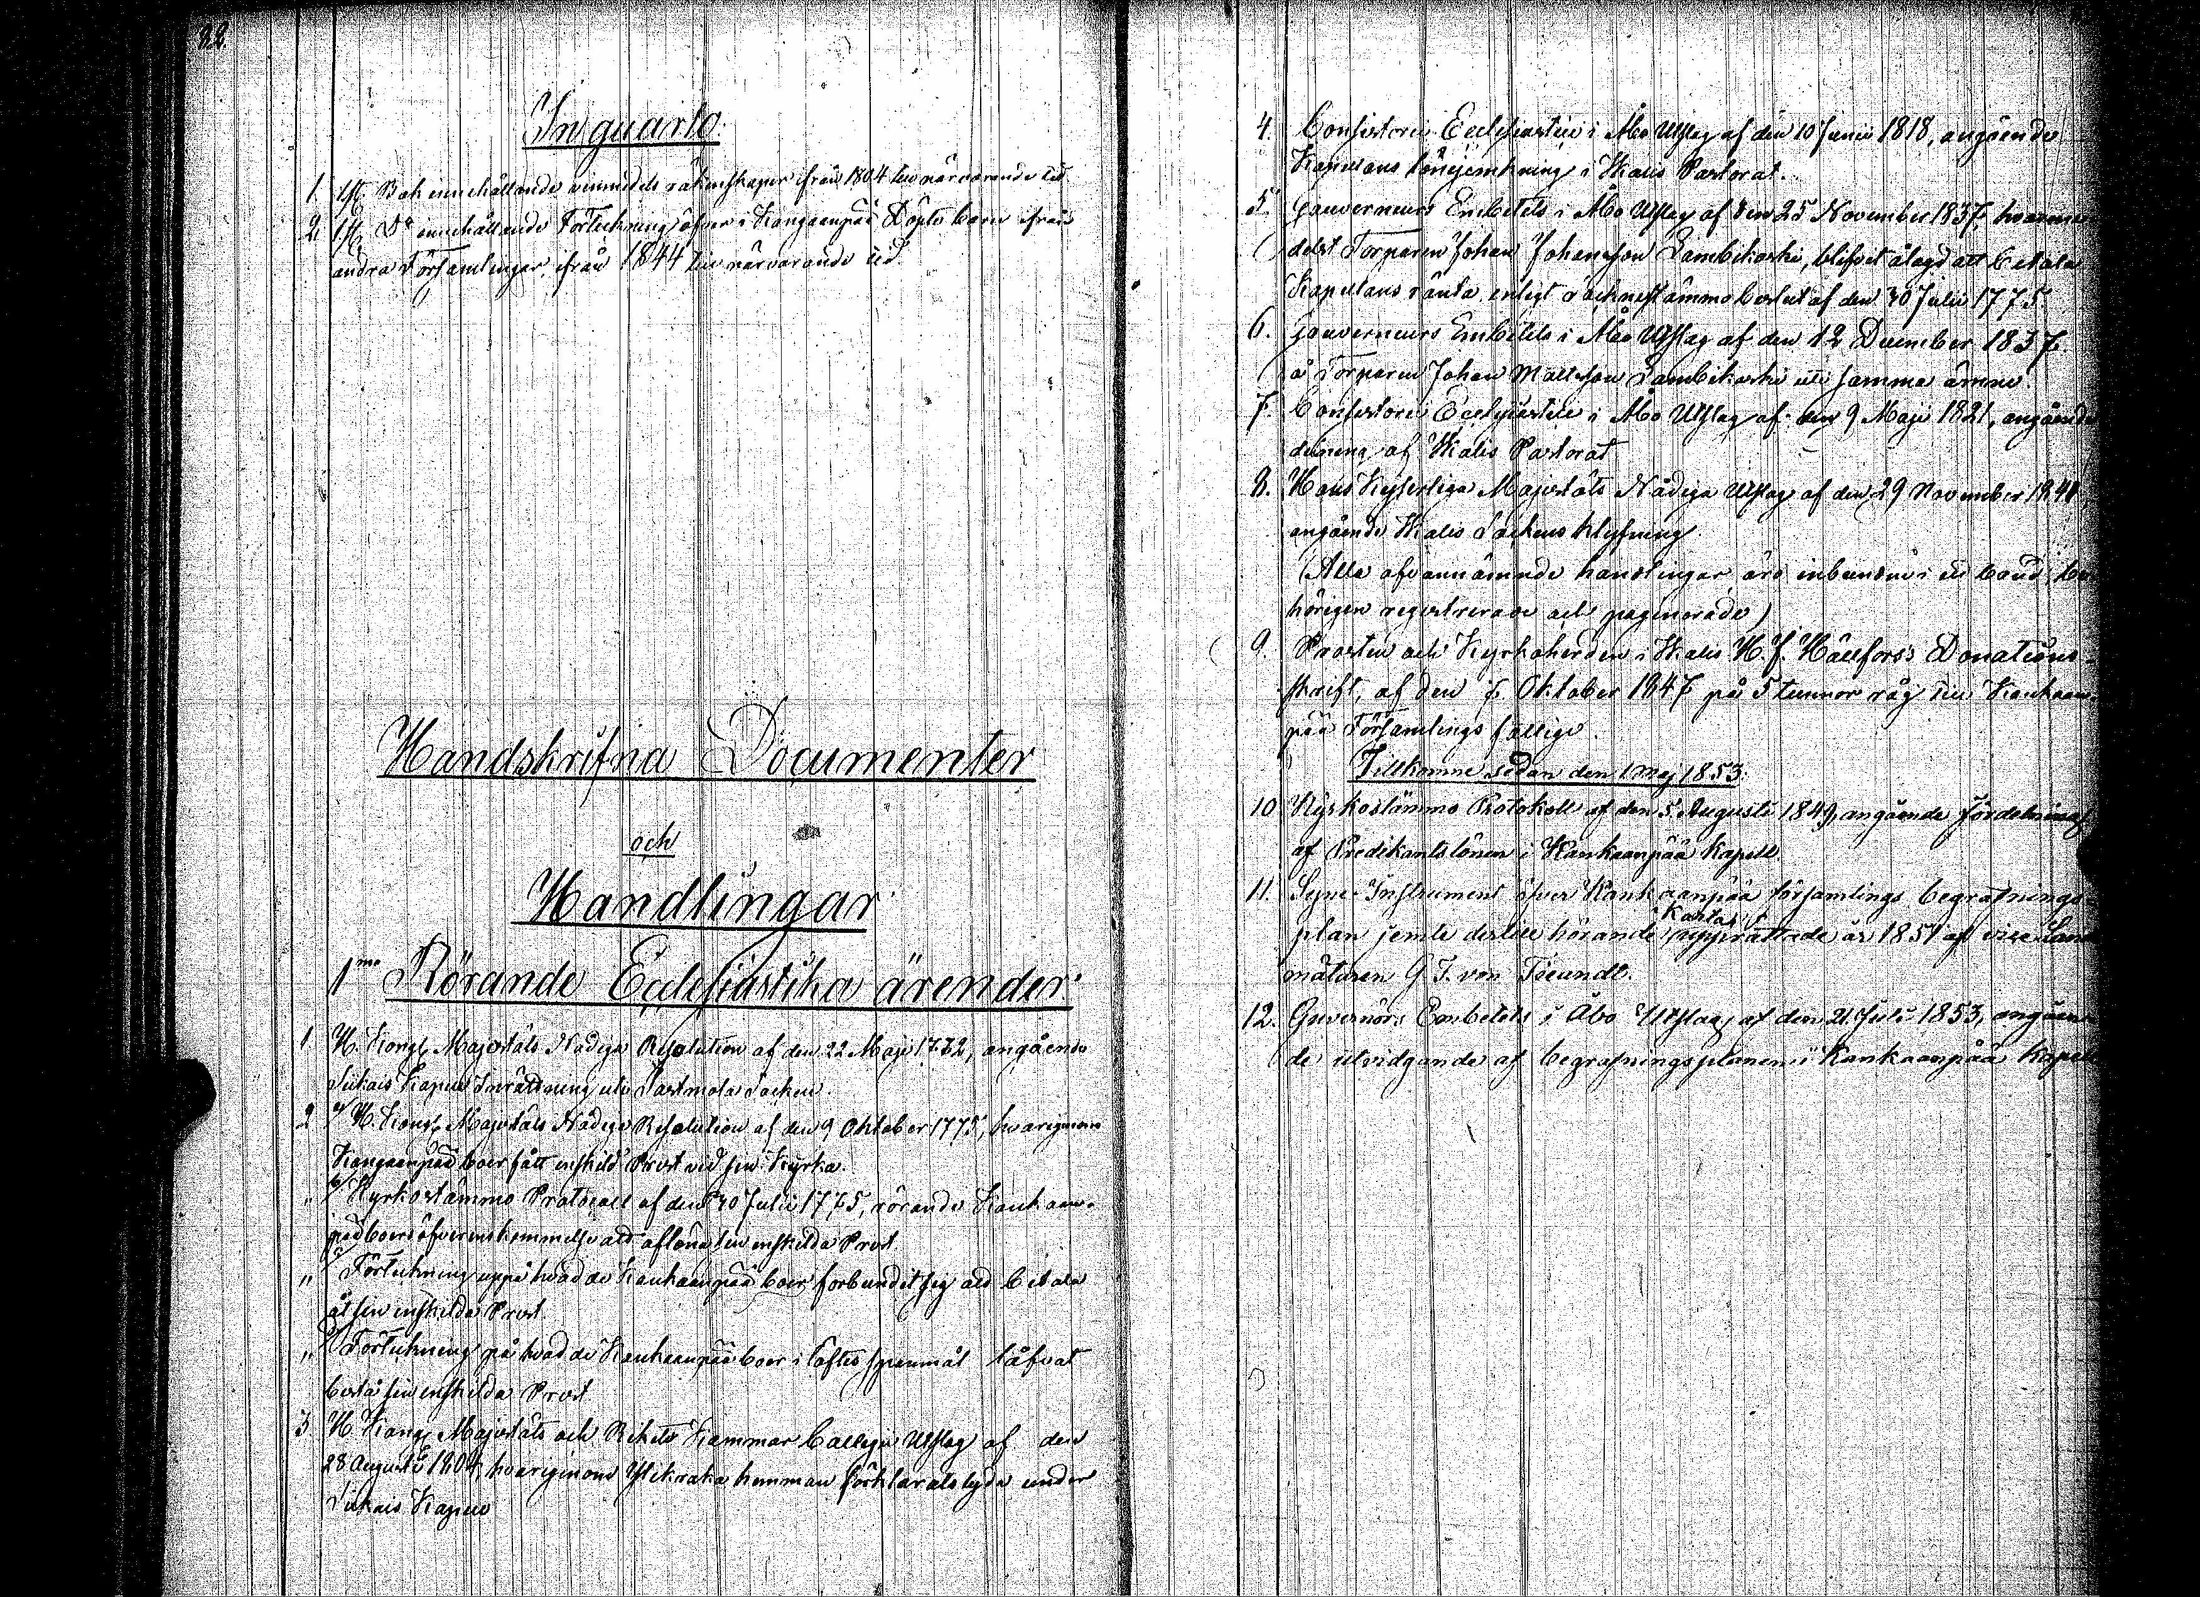 22.
In quarto.
1. 1 st. Bok innehållande räkenskaper ifrån 1804 till närvarande tid
2. 1 st. D:o innehållande Förteckning öfver i Kangaanpää Döpte barn ifrån
andra Församlingar, ifrån 1844 till närvarande tid
Handskrifna Documenter
och
Handlingar
1mo Rörande Ecclesiastika ärender.
1 H. Kongl. Majestäts Nådiga Resolution af den 22 Maji 1772, angående
Siikais Kapell Inrättning uti Sastmola Socken.
2 a/ H. Kongl. Majestäts Nådiga Resolution af den 9 Oktober 1775, hvarigenom
Kangaanpää boer fått enskild Prest vid sin Kyrka.
" b/ Kyrkostämmo Protocoll af den 30 Julii 1775, rörande Kankaan-
pää boers öfverenskommelse att aflöna sin enskilda Prest.
" c/ Förteckning uppå hvad de Kankaanpää boer forbundit sig att betala
åt sin enskilda Prest.
" d/ Förteckning på hvad de Kankaanpää boer i löftes spenmål låfvat
bestå sin enskilda Prest
3. H. Kongl. Majestäts och Rikets Kammar Collegii Utslag af den
28 Augusti 1804, hvarigenom hemman förklarats lyda under
Siikais Kapell
4. Consistorii Ecclesiastici i Åbo Utslag af den 10 Junii 1818, angående
Kapellans lönejemkning i Ikalis Pastorat.
5. Gouverneurs Embetets i Åbo Utslag af den 25 November 1837, hvarme-
delst Torparen Johan Johansson Lambikoski, blifvit ålagd att betala
Kapellans ränta enligt socknestämmo beslut af den 30 Julii 1775.
6. Gouverneurs Embetets i Åbo Utslag af den 12 December 1837.
å Torparen Johan Mattsson Lambikoski uti samma ämne.
7. Consistorii Ecclesiastici i Åbo Utslag af den 9 Maji 1821, angående
delning af Ikalis Pastorat
8. Hans Kejserliga Majestäts Nådiga Utslag af den 29 November 1841,
angående Ikalis Sockens klyfning.
(Alla ofvannämnde handlingar äro inbundne i ett band, be-
hörigen registrerade och paginerade)
9. Prosten och Kyrkoherden i Ikalis H. J. Hällfors's Donations-
skrift, af den 7. Oktober 1847 på 5 tunnor råg till Kankaan-
pää Församlings fattige.
Tillkomne sedan den 1 Maj 1853.
10 Kyrkostämmo Protokoll af den 5 Augusti 1849, angående fördelning
af Predikantslönen i Kankaanpää Kapell.
11. Syne-Instrument öfver Kankaanpää församlings begrafnings-
plan jemte dertill hörande Karta, upprättade år 1851 af vice Land-
mätaren G. F. von
12. Guvernörs Embetets i Åbo Utslag af den 21 Juli 1853, angåen-
de utvidgande af begrafningsplanen i Kankaanpää Kapell